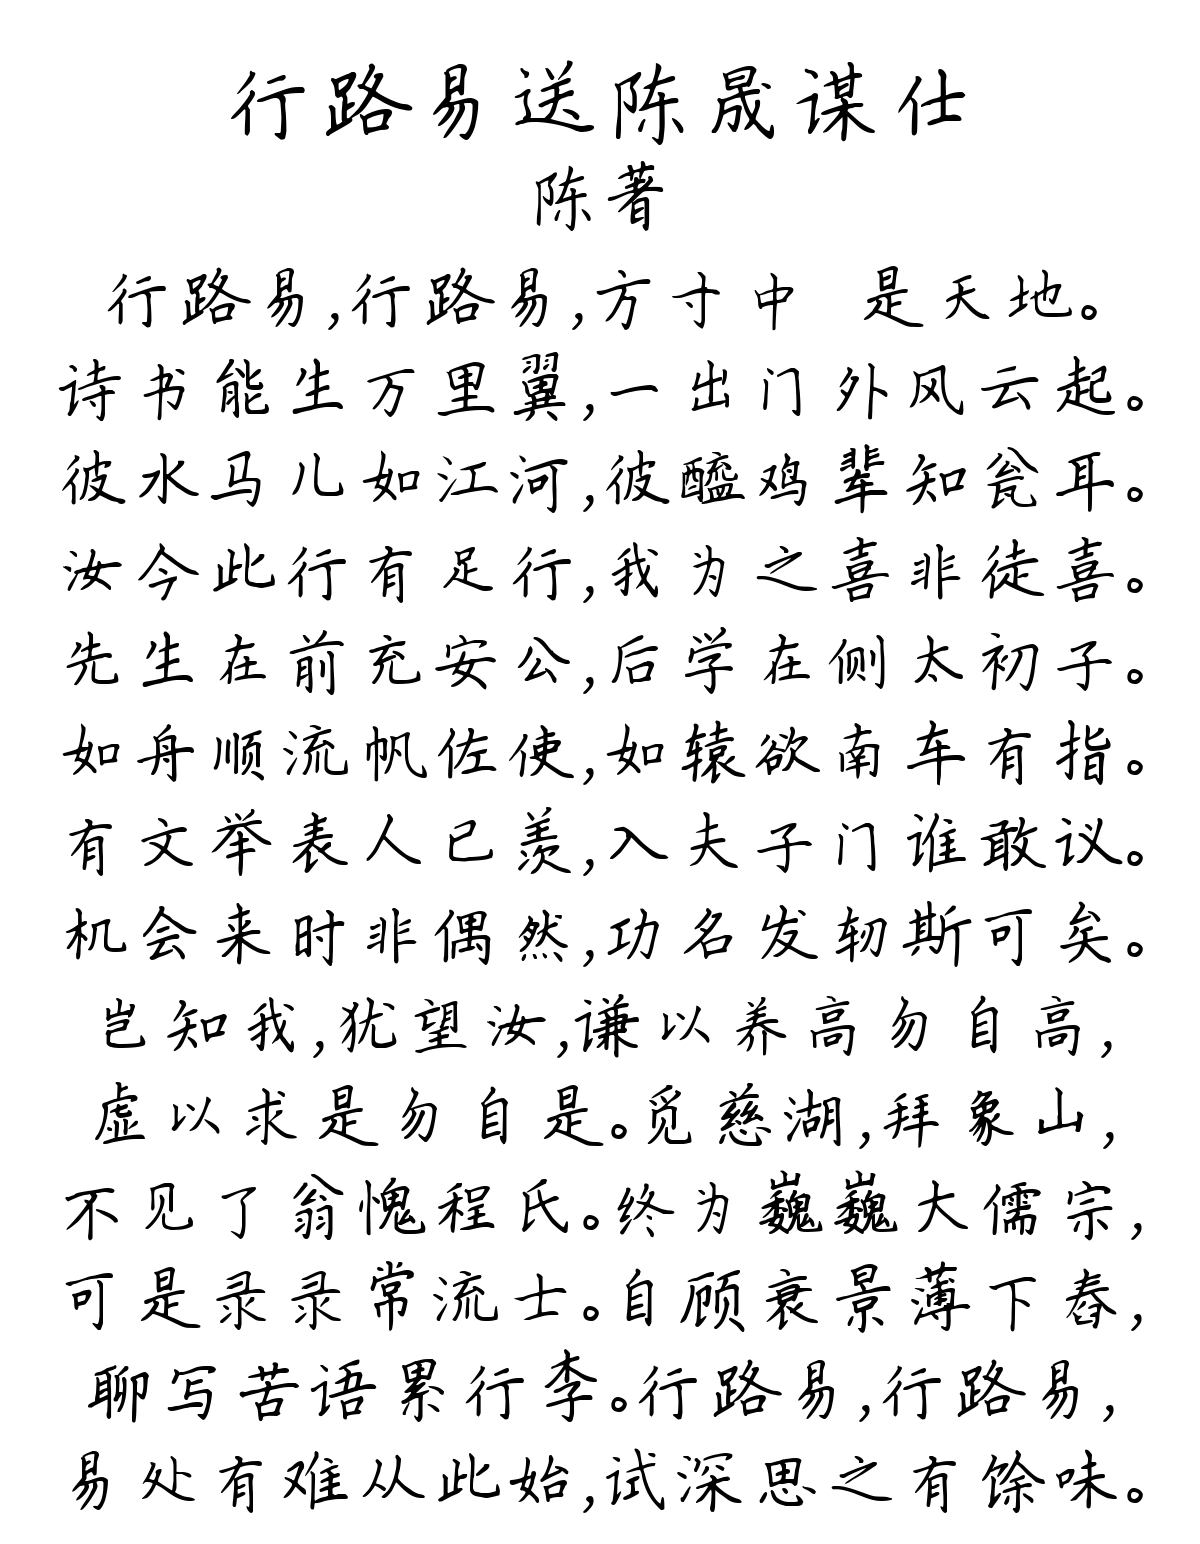 行路易送陈晟谋仕
陈著
行路易,行路易,方寸中 是天地。
诗书能生万里翼,一出门外风云起。
彼水马儿如江河,彼醯鸡辈知瓮耳。
汝今此行有足行,我为之喜非徒喜。
先生在前充安公,后学在侧太初子。
如舟顺流帆佐使,如辕欲南车有指。
有文举表人已羡,入夫子门谁敢议。
机会来时非偶然,功名发轫斯可矣。
岂知我,犹望汝,谦以养高勿自高,
虚以求是勿自是。觅慈湖,拜象山,
不见了翁愧程氏。终为巍巍大儒宗,
可是录录常流士。自顾衰景薄下舂,
聊写苦语累行李。行路易,行路易,
易处有难从此始,试深思之有馀味。